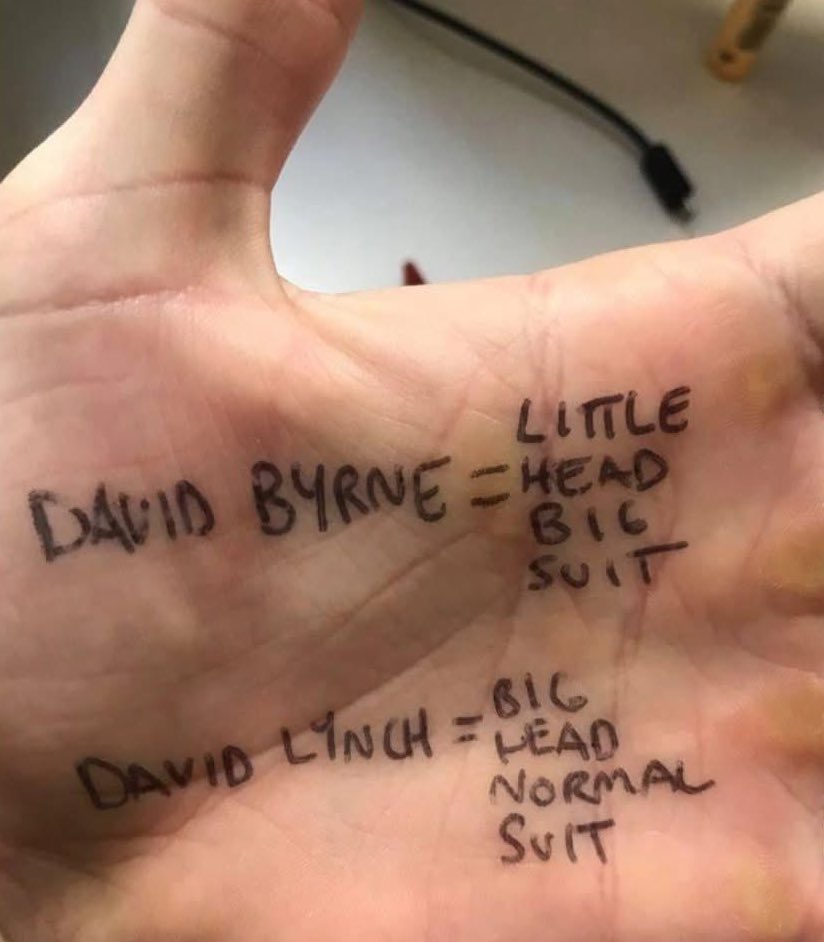 DAVID BYRNE = LITTLE
HEAD
BIG
SUIT
DAVID LYNCH = BIG
HEAD
NORMAL
SUIT